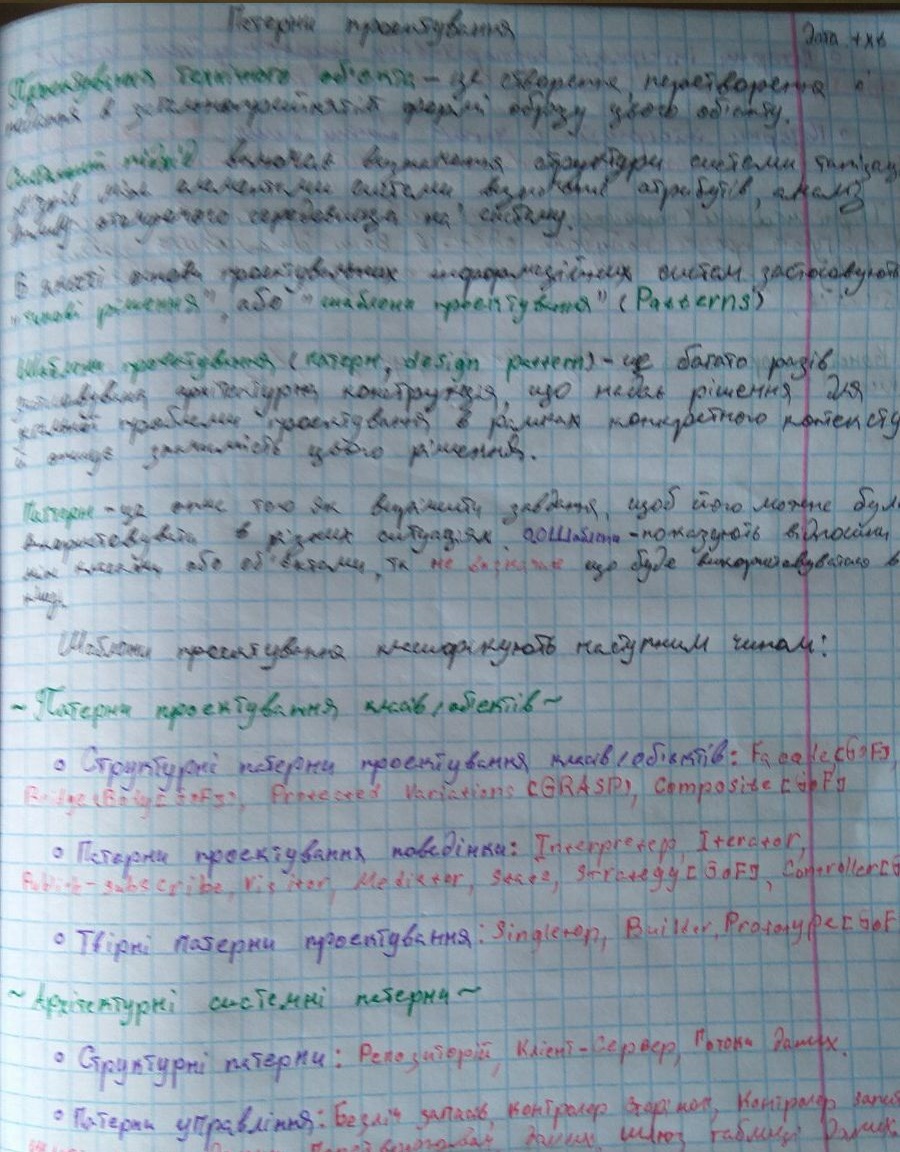 Патерни проектування
Дата
Проектування технічного об'єкта – це створення, перетворення і
подання в загальноприйнятій формі образу цього об'єкту.
Системний підхід включає визначення структури системи типізац
між елементами системи визначення атрибутів, аналіз
впливу оточуючого середовища на систему.
В якості основи проектувальних інформаційних систем застосовують
"типові рішення", або "шаблони проектування" (Patterns)
Шаблони проектування (патерн, design pattern) – це багато разів
застосовувана архітектурна конструкція, що надає рішення для
проблеми проектування в рамках конкретного контексту
й описує значимість цього рішення.
Патерн – це опис того як вирішити завдання, щоб його можна бул
використовувати в різних ситуаціях. ООШаблони – показують відносини
між класами або об'єктами, та не визначає що буде використовуватися в
Шаблони проектування класифікують наступним чином:
~ Патерни проектування класів/об'єктів ~
• Структурні патерни проектування класів/об'єктів: Facade [GoF],
Protected Variations (GRASP), Composite [GoF]
• Патерни проектування поведінки: Interpreter, Iterator,
Publish-subscribe, Visitor, Mediator, State, Strategy [GoF], Controller [G
• Твірні патерни проектування: Singleton, Builder, Prototype [GoF
~ Архітектурні системні патерни ~
• Структурні патерни: Репозиторій, Клієнт-Сервер, Потоки даних.
• Патерни управління: Безліч запасів, контролер сторінок, Контролер запит
даних, шлюз таблиці даних